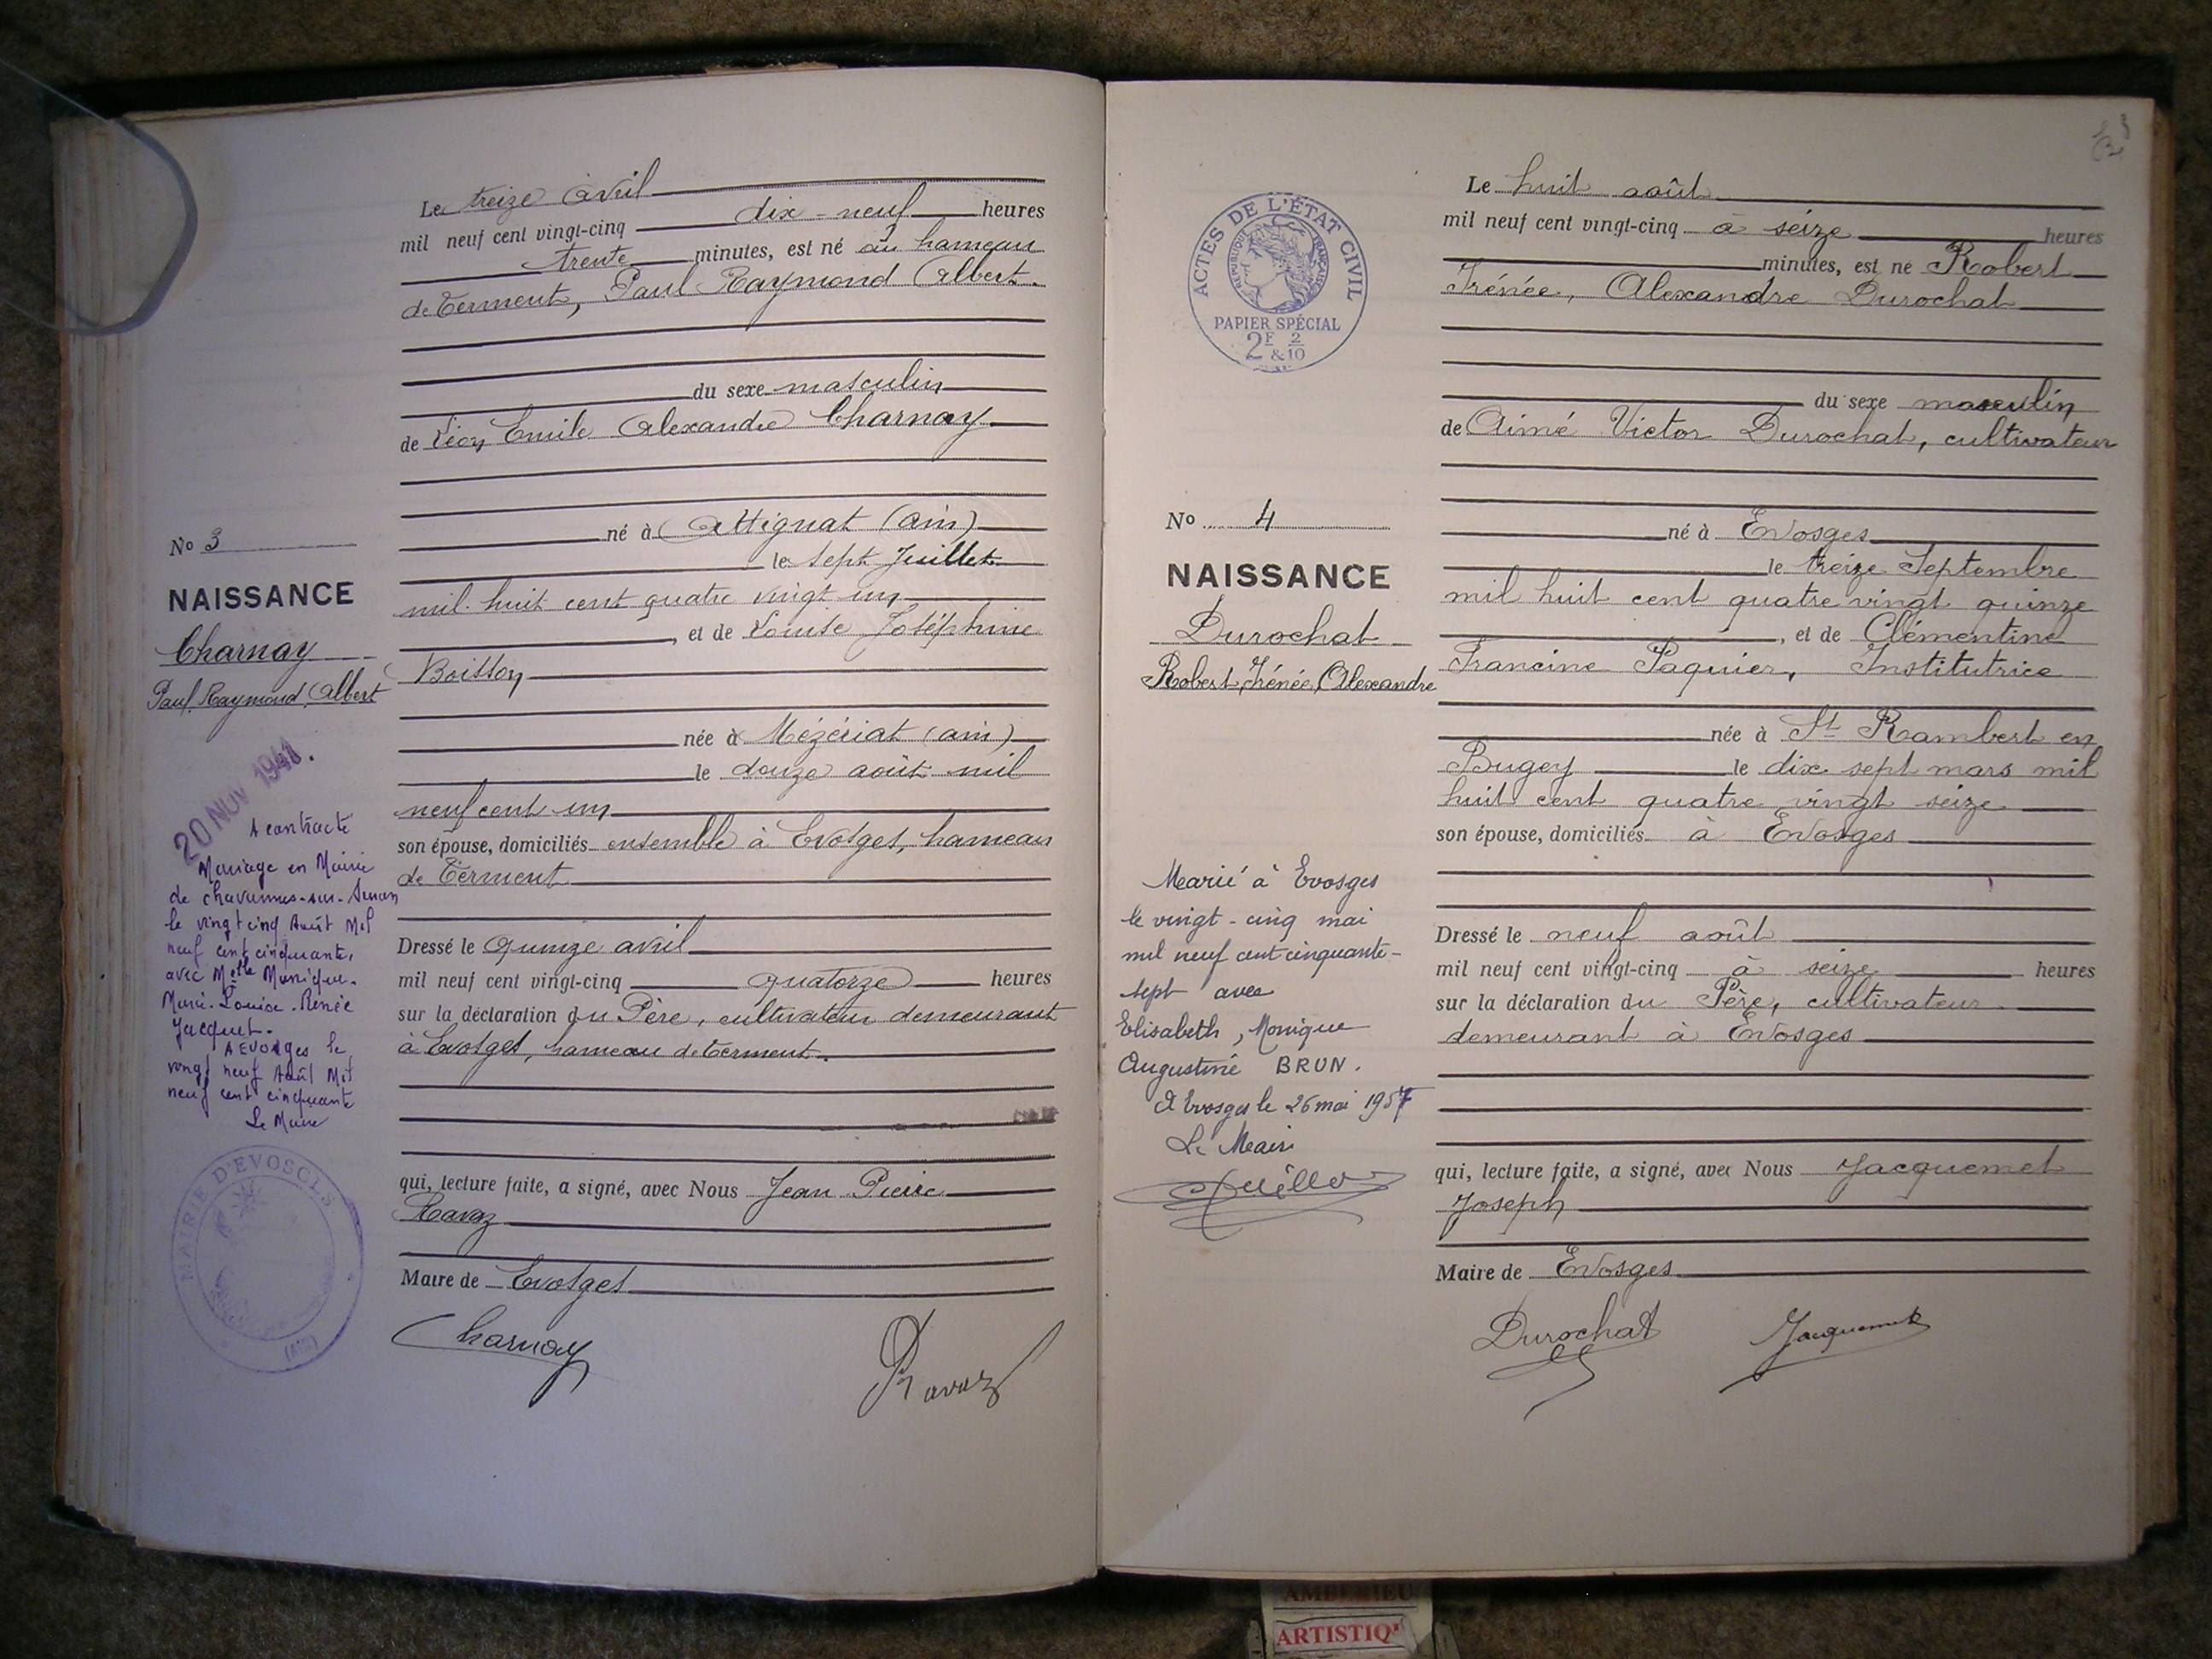 Le treize avril
mil neuf cent vingt-cinq dix-neuf heures
trente minutes, est né au hameau
de Terment, Paul Raymond Albert.
du sexe masculin
de Léon Emile Alexandre Charnay
né à Attignat (Ain)
le sept Juillet
mil huit cent quatre vingt un
, et de Louise Joséphine
Boisson
née à Mézériat (Ain)
le douze août mil
neuf cent un
son épouse, domiciliés ensemble à Evosges, hameau
de Terment
Dressé le quinze avril
mil neuf cent vingt-cinq quatorze heures
sur la déclaration du Père, cultivateur demeurant
à Evosges, hameau de Terment.
qui, lecture faite, a signé, avec Nous Jean Pierre
Ravaz
Maire de Evosges
Charnay
Ravaz
No 3
NAISSANCE
Charnay
Paul, Raymond, Albert
20 NOV
A contracté
Mariage en Mairie
de Chavannes-sur-Suran
le vingt cinq Août Mil
neuf cent cinquante,
avec Melle Monique-
Marie-Louise-Renée
Jacquet.
A EVOSGES le
vingt neuf Août Mil
neuf cent cinquante
Le Maire
MAIRIE D'EVOSGES
(AIN)
ACTES DE L'ÉTAT CIVIL
RÉPUBLIQUE FRANÇAISE
PAPIER SPÉCIAL
2F 2
&10
No 4
NAISSANCE
Durochat
Robert, Irénée, Alexandre
Marié à Evosges
le vingt-cinq mai
mil neuf cent cinquante-
sept avec
Elisabeth, Monique
Augustine BRUN.
A Evosges le 26 mai 1957
Le Maire
Le huit août
mil neuf cent vingt-cinq à seize heures
minutes, est né Robert
Irénée, Alexandre Durochat
du sexe masculin
de Aimé Victor Durochat, cultivateur
né à Evosges
le treize Septembre
mil huit cent quatre vingt quinze
, et de Clémentine
Francine Paquier, Institutrice
née à St Rambert en
Bugey le dix sept mars mil
huit cent quatre vingt seize
son épouse, domiciliés à Evosges
Dressé le neuf août
mil neuf cent vingt-cinq à seize heures
sur la déclaration du Père, cultivateur
demeurant à Evosges
qui, lecture faite, a signé, avec Nous Jacquemet
Joseph
Maire de Evosges
Durochat
Jacquemet
AMBERIEU
ARTISTIQ